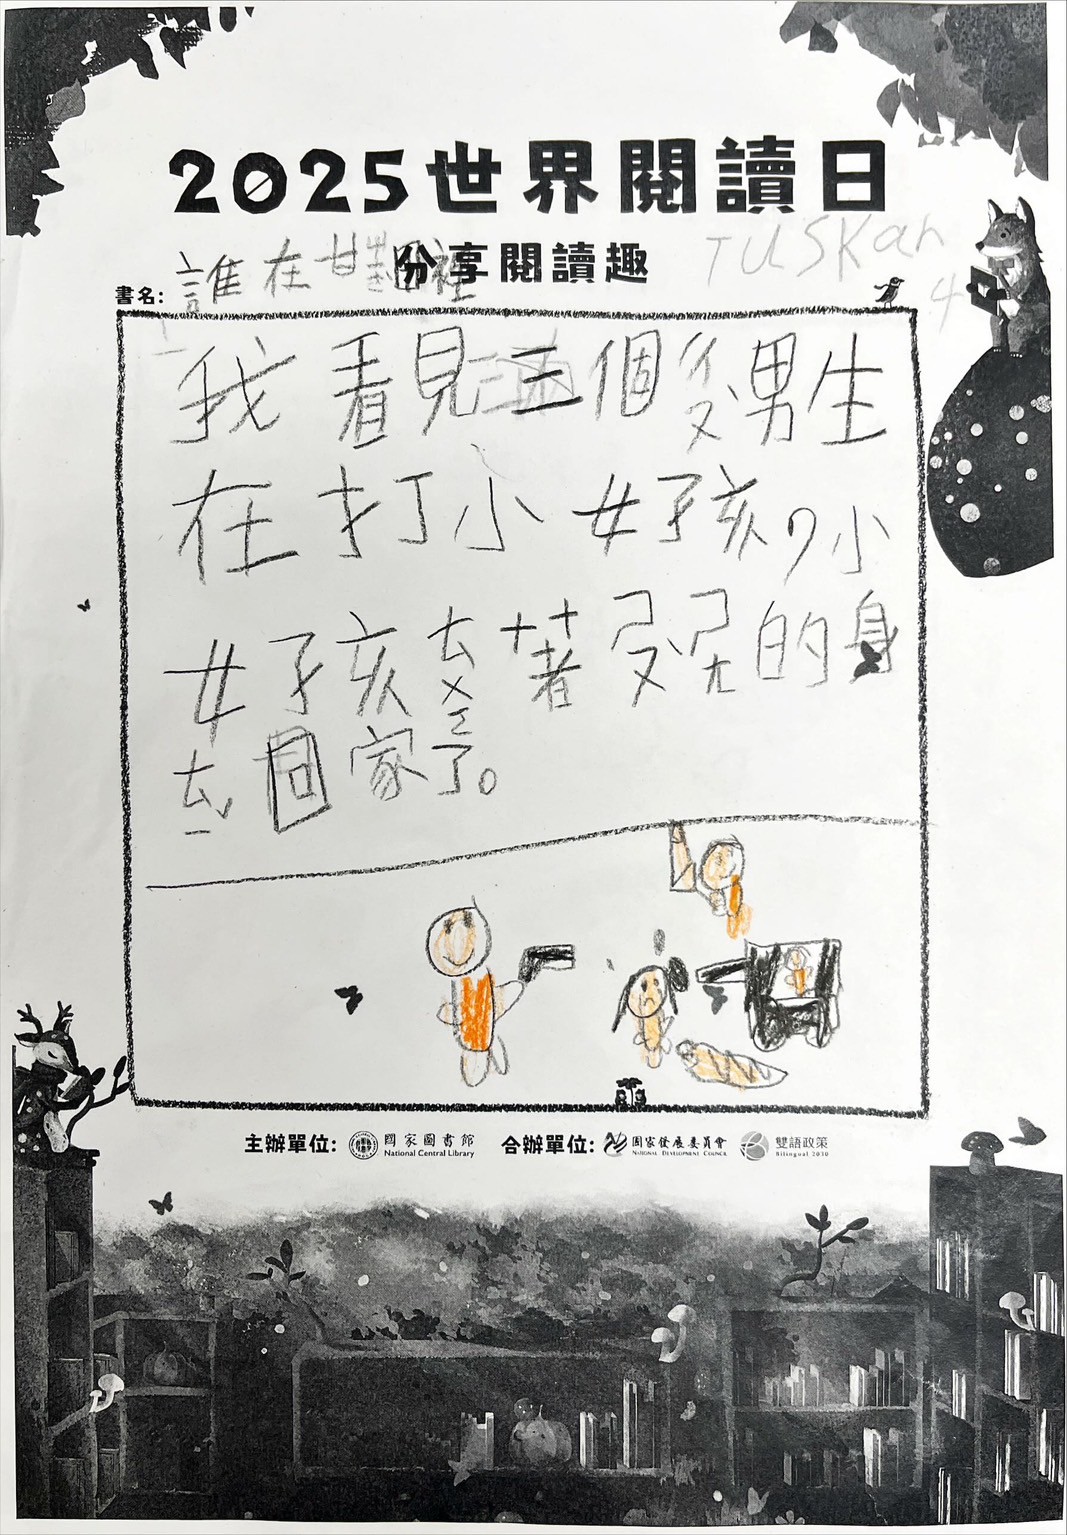 2025世界閱讀日
分享閱讀趣
TUSKan
4
書名: 誰在
我看見三個男生
在打小女孩,小
女孩 著 的身
回家了。
主辦單位: 國家圖書館 National Central Library 合辦單位: 國家發展委員會 National Development Council 雙語政策 Bilingual 2030